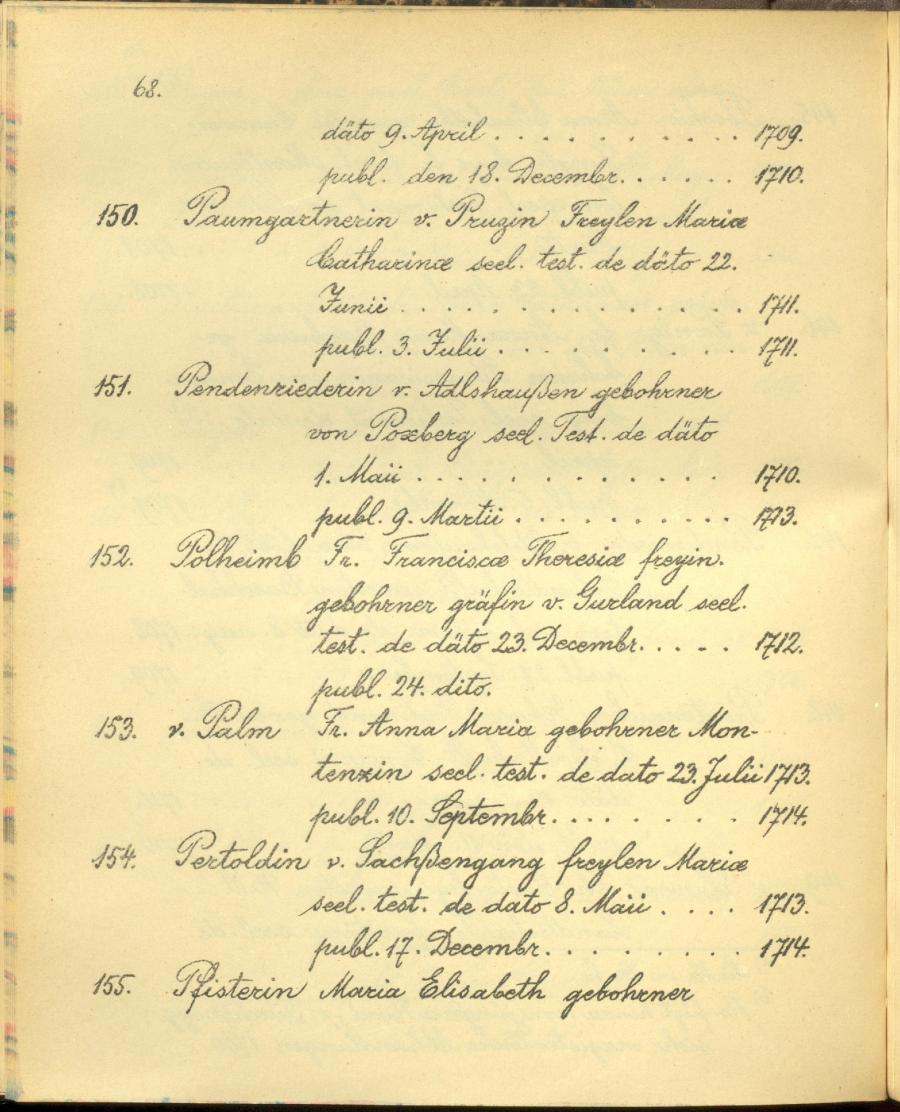 68.
däto 9. April . . . . . . . . . . 1709.
publ. den 18. Decembr. . . . . . 1710.
150. Paumgartnerin v. Pruzin Freylen Mariæ
Catharinæ seel. test. de däto 22.
Junii . . . . . . . . . . . . . . 1711.
publ. 3. Julii . . . . . . . . . . 1711.
151. Pendenriederin v. Adlshaußen gebohrner
von Poxberg seel. Test. de däto
1. Maii . . . . . . . . . . . . . 1710.
publ. 9. Martii . . . . . . . . . . 1713.
152. Polheimb Fr. Franciscæ Theresiæ freyin.
gebohrner gräfin v. Gurland seel.
test. de däto 23. Decembr. . . . . 1712.
publ. 24. dito.
153. v. Palm Fr. Anna Maria gebohrner Mon-
tenzin seel. test. de dato 23. Julii 1713.
publ. 10. Septembr. . . . . . . . 1714.
154. Pertoldin v. Sachßengang freylen Mariæ
seel. test. de dato 8. Maii . . . . 1713.
publ. 17. Decembr. . . . . . . . . 1714.
155. Pfisterin Maria Elisabeth gebohrner